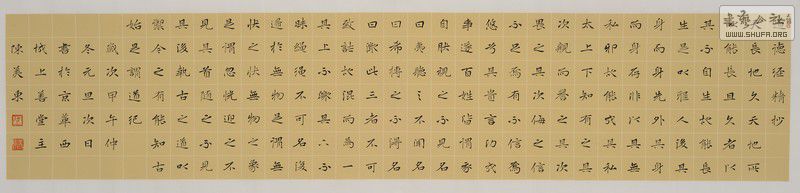 德經精抄
天長地久天地所
以能長且久者以
其不自生故能長
生是以聖人後其
身而身先外其身
而身存非以其無
私邪故能成其私
太上下知有之其
次親而譽之其次
畏之其次侮之信
不足焉有不信焉
悠兮其貴言功成
事遂百姓皆謂我
自然視之不見名
曰夷聽之不聞名
曰希搏之不得名
曰微此三者不可
致詰故混而為一
其上不皦其下不
昧繩繩不可名復
歸於無物是謂無
狀之狀無物之象
是謂忽恍迎之不
見其首隨之不見
其後執古之道以
禦今之有能知古
始是謂道紀
歲次甲午仲
冬元旦次日
書於京華西
城上善堂主
陳英東
WWW.SHUFA.ORG